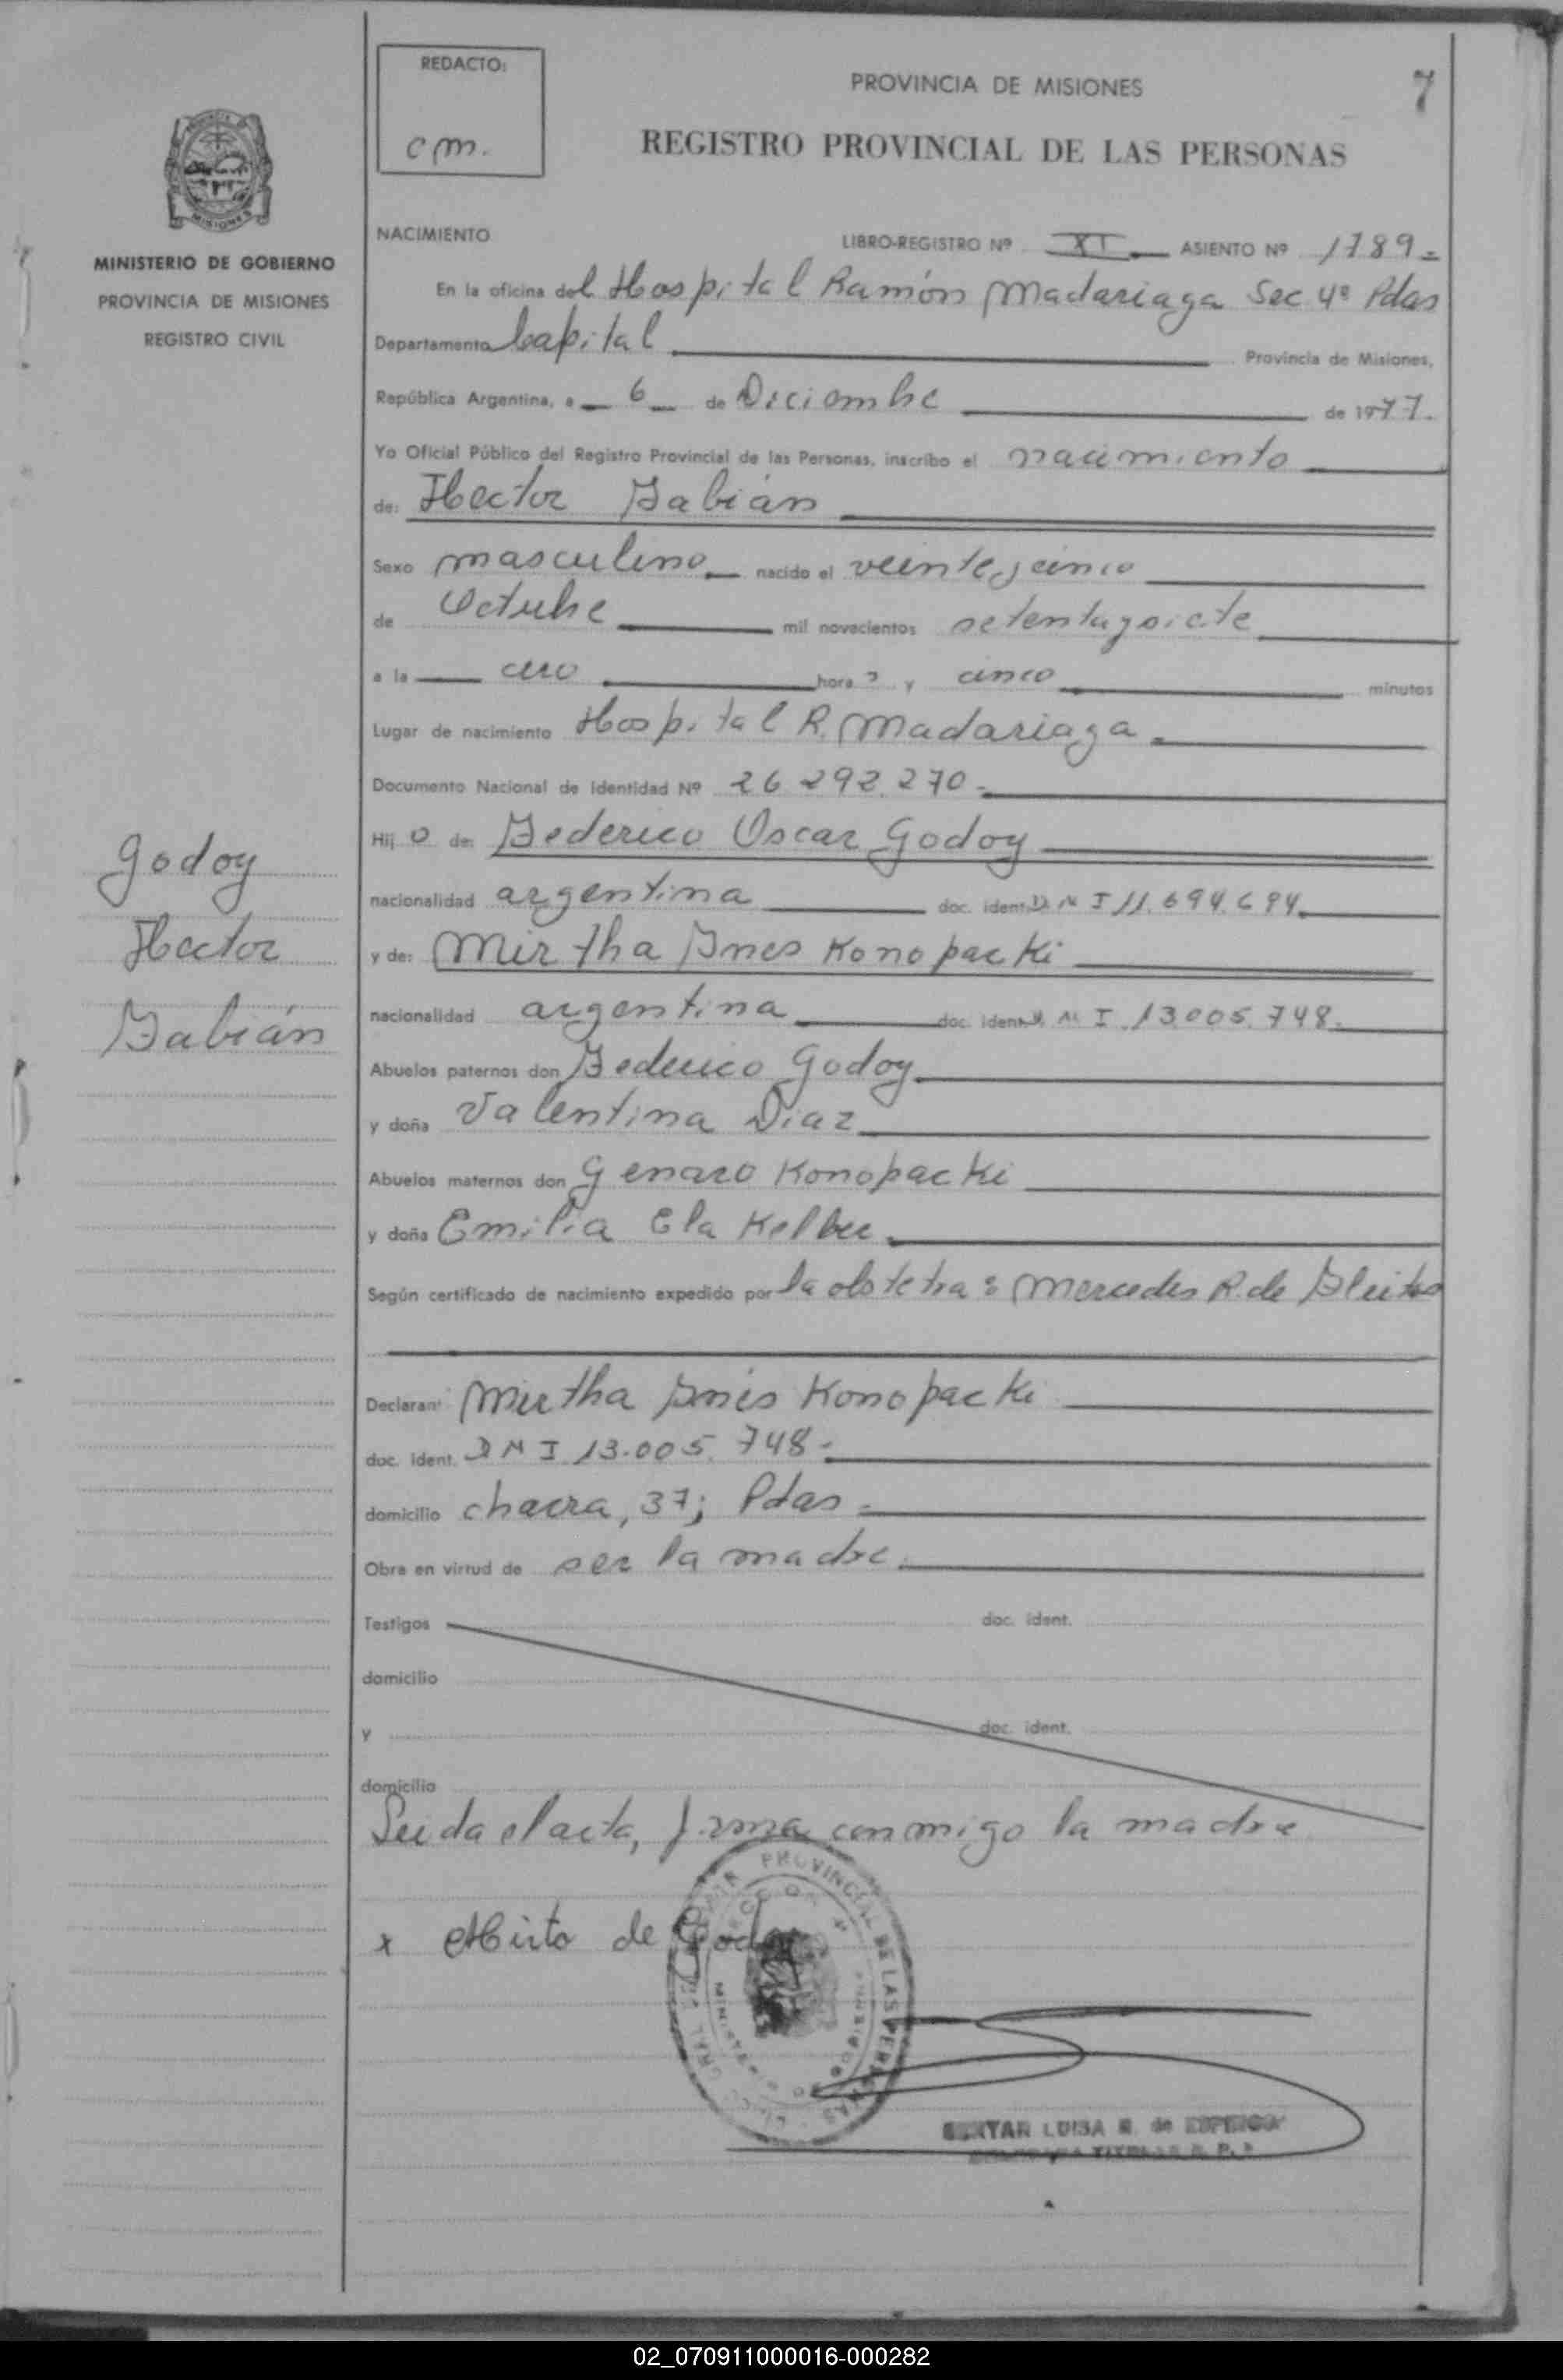 REDACTO:
cm.
PROVINCIA DE MISIONES
7
REGISTRO PROVINCIAL DE LAS PERSONAS
MISIONES
MINISTERIO DE GOBIERNO
PROVINCIA DE MISIONES
REGISTRO CIVIL
NACIMIENTO
LIBRO-REGISTRO Nº XI ASIENTO Nº 1789=
En la oficina del Hospital Ramón Madariaga Sec 4ª Pdas
Departamento Capital Provincia de Misiones,
República Argentina, a 6 de Diciembre de 1977.
Yo Oficial Público del Registro Provincial de las Personas, inscribo el nacimiento
de: Hector Fabián
Sexo masculino nacido el veinteycinco
de Octubre mil novecientos setentaysiete
a la cero horas y cinco minutos
Lugar de nacimiento Hospital R. Madariaga
Documento Nacional de Identidad Nº 26.292.270-
Hijo de: Federico Oscar Godoy
nacionalidad argentina doc. ident. DNI 11.694.694
y de: Mirtha Ines Konopacki
nacionalidad argentina doc. ident. DNI 13.005.748.
Abuelos paternos don Federico Godoy
y doña Valentina Diaz
Abuelos maternos don Genaro Konopacki
y doña Emilia Ela Kelber
Según certificado de nacimiento expedido por la obstetra: Mercedes R. de
Declarant Mirtha Inés Konopacki
doc. ident. DNI 13.005.748-
domicilio chacra, 37; Pdas
Obra en virtud de ser la madre.
Testigos doc. ident.
domicilio
y doc. ident.
domicilio
Leida el acta, firma conmigo la madre
x Mirta de Godoy
PROVINCIAL DE LAS PERSONAS
LUISA de
Godoy
Hector
Fabián
02_070911000016-000282